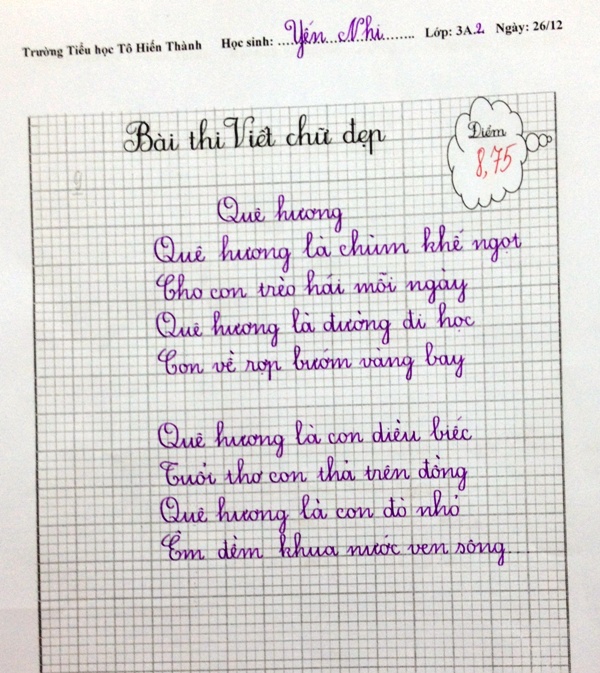 Trường Tiểu học Tô Hiến Thành Học sinh: Yến Nhi Lớp: 3A.2 Ngày: 26/12
Bài thi Viết chữ đẹp
Điểm
8,75
Quê hương
Quê hương là chùm khế ngọt
Cho con trèo hái mỗi ngày
Quê hương là đường đi học
Con về rợp bướm vàng bay
Quê hương là con diều biếc
Tuổi thơ con thả trên đồng
Quê hương là con đò nhỏ
Êm đềm khua nước ven sông